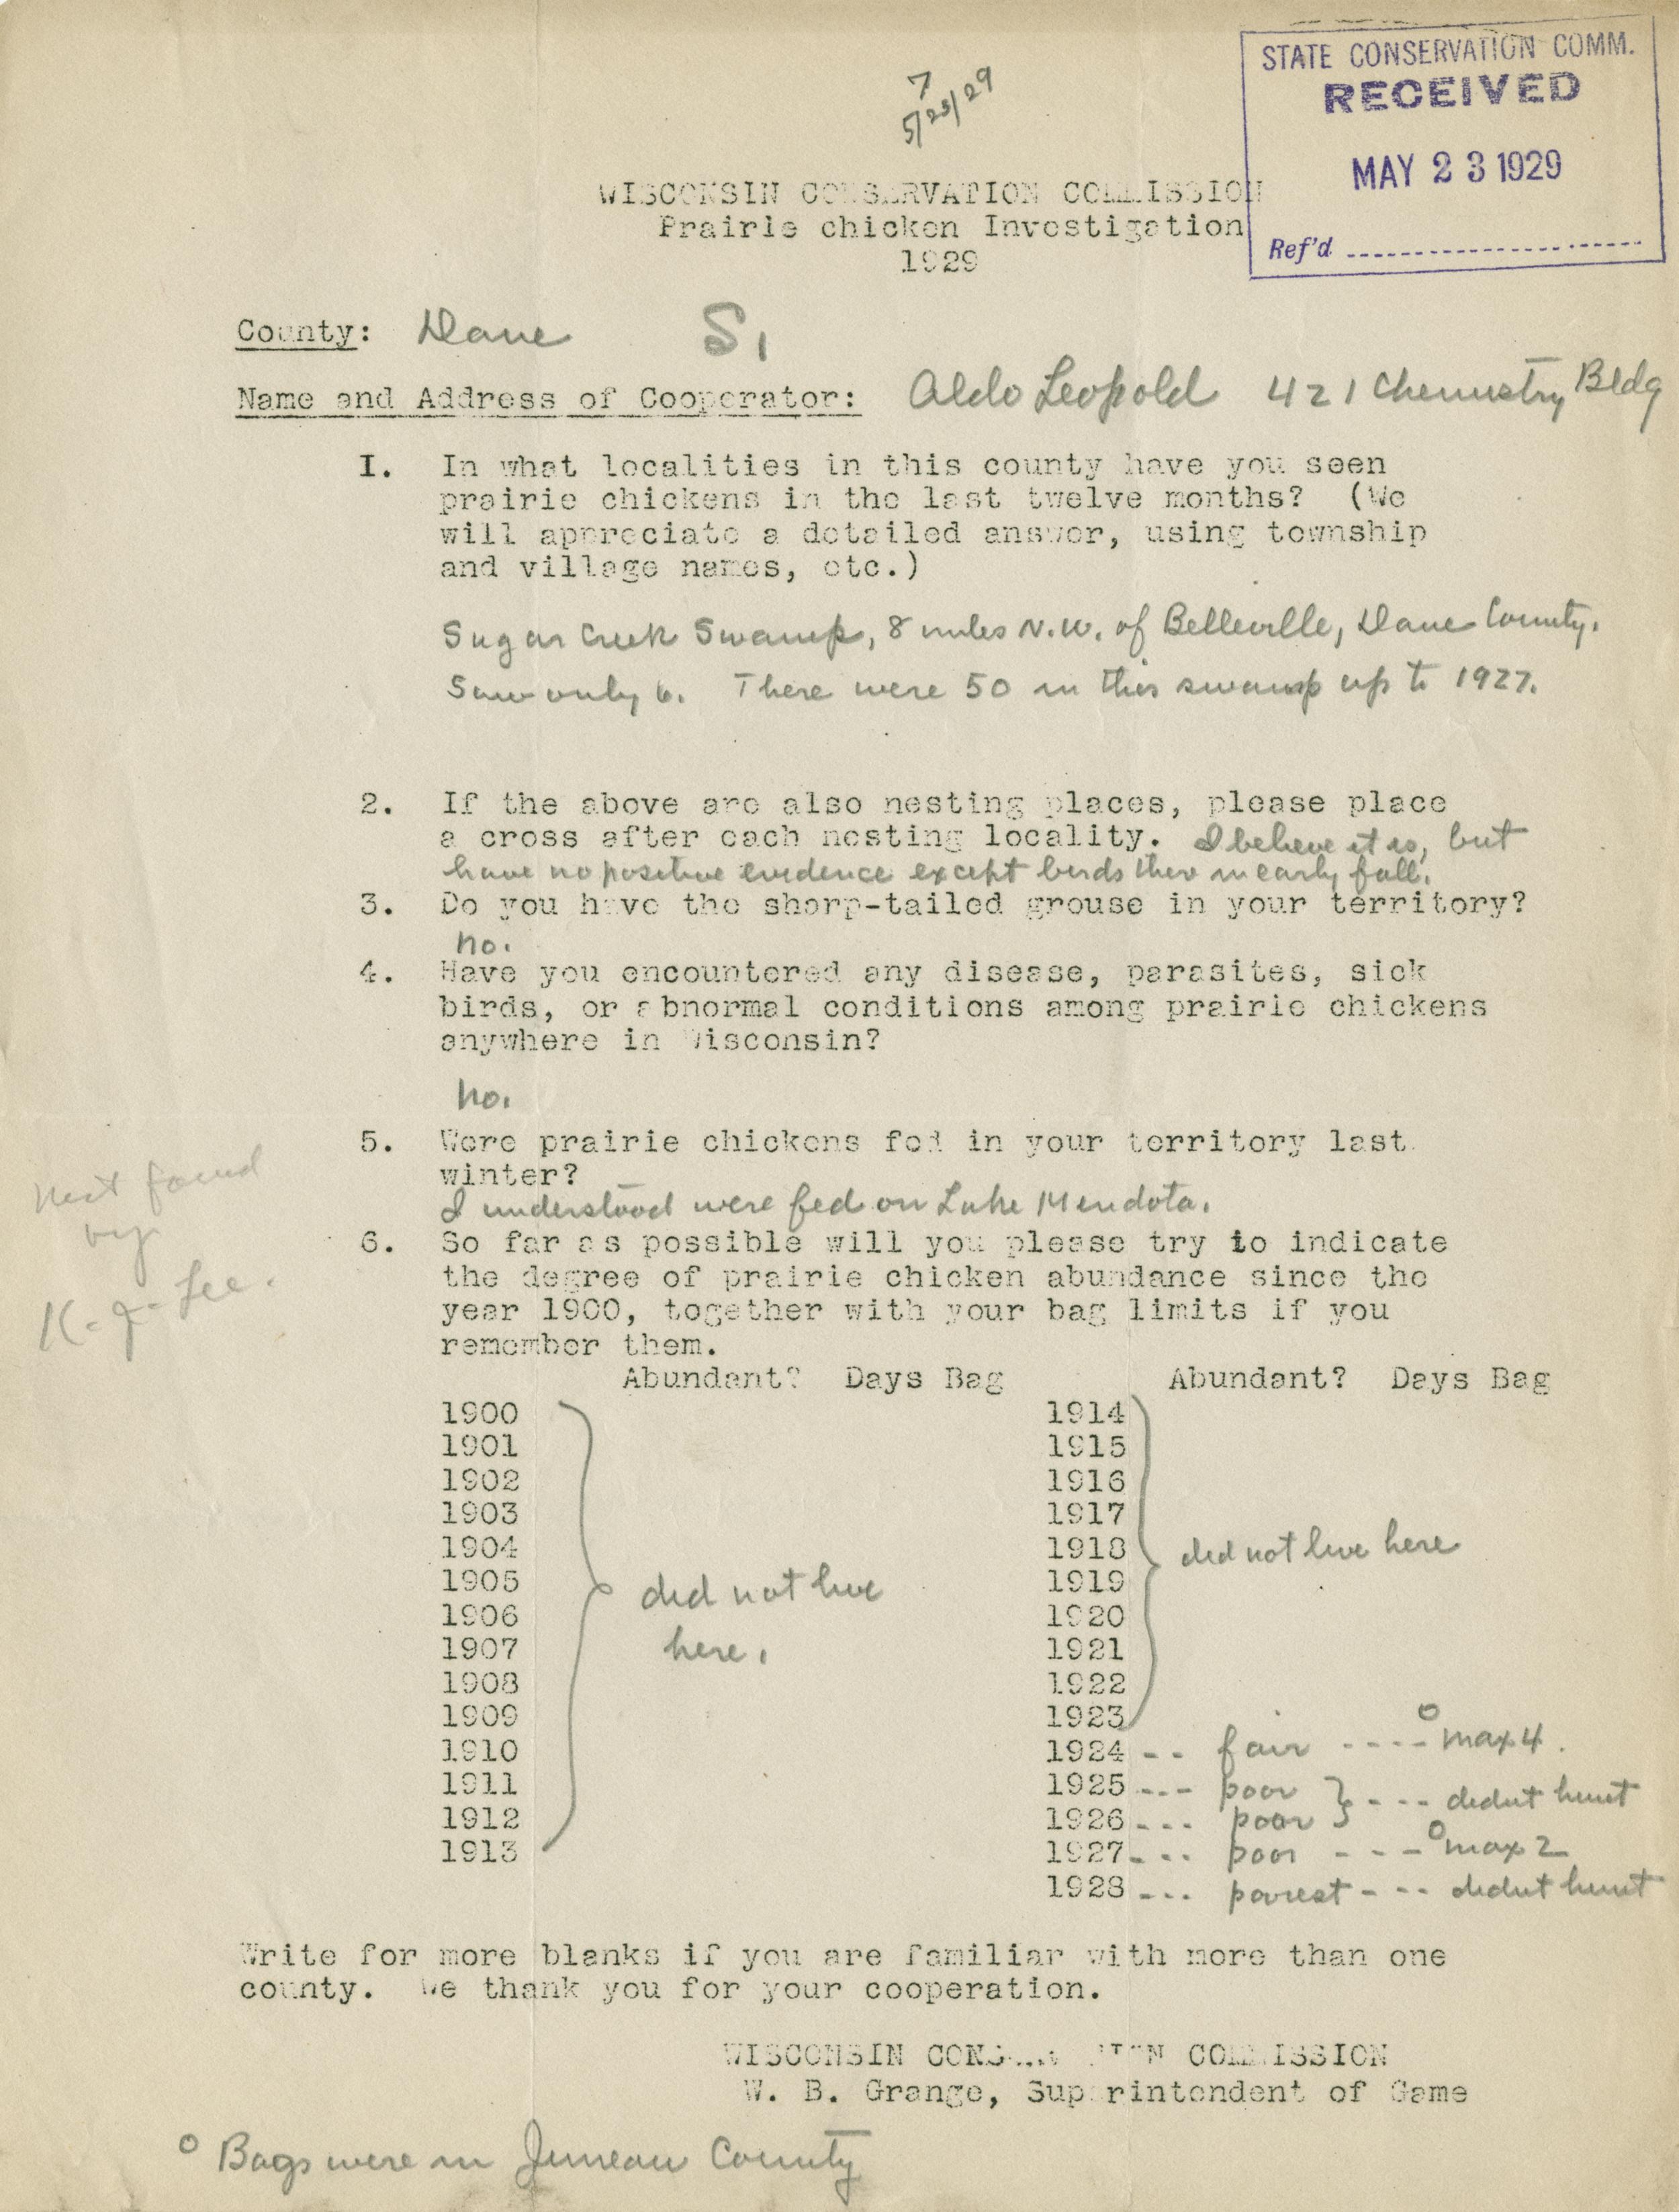 STATE CONSERVATION COMM.
RECEIVED
MAY 23 1929
Ref'd
7
5/23/29
WISCONSIN CONSERVATION COMMISSION
Prairie chicken Investigation
1929
County: Dane S1
Name and Address of Cooperator: Aldo Leopold 421 Chemistry Bldg
I. In what localities in this county have you seen
prairie chickens in the last twelve months? (We
will appreciate a detailed answer, using township
and village names, etc.)
Sugar Creek Swamp, 8 miles N.W. of Belleville, Dane County.
Saw only 6. There were 50 in this swamp up to 1927.
2. If the above are also nesting places, please place
a cross after each nesting locality. I believe it is, but
have no positive evidence except birds there in early fall.
3. Do you have the sharp-tailed grouse in your territory?
no.
4. Have you encountered any disease, parasites, sick
birds, or abnormal conditions among prairie chickens
anywhere in Wisconsin?
no.
5. Were prairie chickens fed in your territory last
winter?
I understood were fed on Lake Mendota.
Nest found
by
K. J. Lee.
6. So far as possible will you please try to indicate
the degree of prairie chicken abundance since the
year 1900, together with your bag limits if you
remember them.
Abundant? Days Bag Abundant? Days Bag
1900 1914
1901 1915
1902 1916
1903 1917
1904 1918 did not live here
1905 did not live 1919
1906 1920
1907 here. 1921
1908 1922
1909 1923
1910 1924 -- fair ---- ° max 4.
1911 1925 --- poor } ---- didnt hunt
1912 1926 --- poor
1913 1927 --- poor --- ° max 2
1928 --- poorest --- didnt hunt
Write for more blanks if you are familiar with more than one
county. We thank you for your cooperation.
WISCONSIN CONSERVATION COMMISSION
W. B. Grange, Superintendent of Game
° Bags were in Juneau County